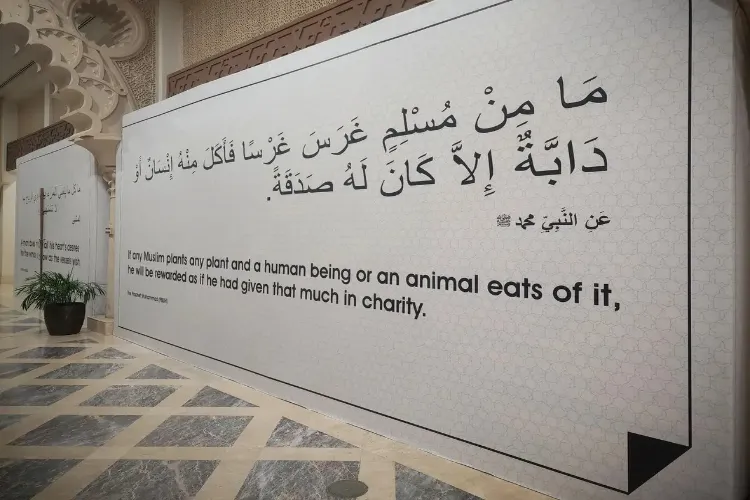 مَا مِنْ مُسْلِمٍ غَرَسَ غَرْسًا فَأَكَلَ مِنْهُ إِنْسَانٌ أَوْ
دَابَّةٌ إِلاَّ كَانَ لَهُ صَدَقَةً.
عَنِ النَّبِيِّ محمد ﷺ
If any Muslim plants any plant and a human being or an animal eats of it,
he will be rewarded as if he had given that much in charity.
The Prophet Muhammad (PBUH)